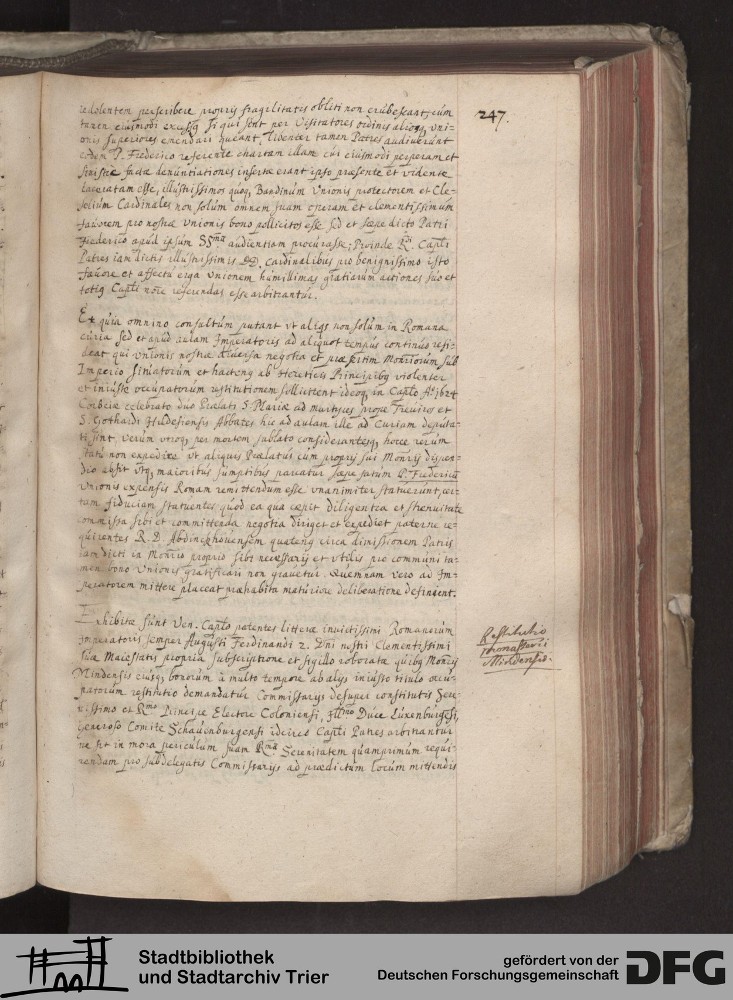 247.
redolentem praescribere proprij fragilitatis obliti non erubescant, cum
tamen eiusmodi excessus si qui sint per Visitatores ordinis aliosq, Vni-
onis superiores emendari queant. Libenter tamen Patres audiverunt
eodem P. Frederico referente chartam illam cui eiusmodi perperam et
sinistre factae denuntiationes insertae erant ipso praesente et vidente
laceratam esse, illustrissimos quoq, Bandinum Vnionis protectorem et Cle-
selium Cardinales non solum omnem suam operam et clementissimum
favorem pro nostrae Vnionis bono pollicitos esse sed et saepe dicto Patri
Frederico apud ipsum SSmum audientiam procurasse; Proinde Rdi Capli
Patres iam dictis illustrissimis DD. Cardinalibus pro benignissimo isto
favore et affectu erga Vnionem humillimas gratiarum actiones suo et
totius Capli noie referendas esse arbitrantur.
Et quia omnino consultum putant vt aliqs non solum in Romana
curia sed et apud aulam Imperatoris ad aliquot tempus continuo resi-
deat qui Vnionis nostrae diversa negotia et praesertim Monriorum sub
Imperio sitiatorum et hactenq ab Haereticis Principibq violenter
et iniuste occupatorum restitutionem sollicitent ideoq, in Caplo Ao 1624
Corbeiae celebrato duo Praelati S. Mariae ad martyres prope Treviros et
S. Gothardi Hildesiensis Abbates hic ad aulam ille ad Curiam deputa-
ti sint, verum vtroq, per mortem sublato considerantesq, hocce rerum
statu non expedire vt aliquis Praelatus cum proprij sui Monrij dispen-
dio absit vtq, maioribus sumptibus parcatur saepe fatum P. Fredericum
Vnionis expensis Romam remittendum esse vnanimiter statuerunt, cer-
tam fiduciam statuentes quod ea qua caepit diligentia et strenuitate
commissa sibi et committenda negotia diriget et expediet paterne re-
quirentes R. D. Abdinckhovensem quatenq circa dimissionem Patris
iam dicti in Monrio proprio sibi necessarij et vtilis pro communi ta-
men bono Vnionis gratificari non gravetur. Quemnam vero ad Im-
peratorem mittere placeat praehabita maturiore deliberatione definient.
Exhibitae sunt Ven. Caplo patentes litterae invictissimi Romanorum
Imperatoris semper Augusti Ferdinandi 2. Dni nostri Clementissimi
suae Maiestatis propria subscriptione et sigillo roboratae quibq Monrij
Mindensis eiusq, bonorum a multo tempore ab alijs iniusto titulo occu-
patorum restitutio demandatur Commissarijs desuper constitutis Sere-
nissimo et Rmo Principe Electore Coloniensi, Illmo Duce Luxenburgesi,
Generoso Comite Schauenburgensi idcirco Capli Patres arbitrantur
ne sit in mora periculum suam Rmam Serenitatem quamprimum requi-
rendam pro subdelegatis Commissarijs ad praedictum locum mittendis
Restitutio
monasterii
Mindensis.
Stadtbibliothek
und Stadtarchiv Trier
gefördert von der
Deutschen Forschungsgemeinschaft
DFG